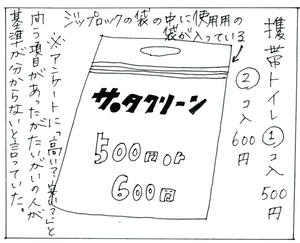 携帯トイレ①コ入 500円
②コ入 600円
ジップロックの袋の中に使用用の
袋が入っている
サッタクリーン
500円or
600円
※アンケートに「高い?安い?」と
問う項目があったがたいがいの人が
基準が分からないと言っていた。